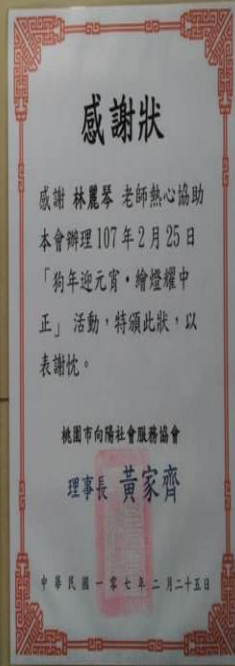 感謝狀
感謝 林麗琴 老師熱心協助
本會辦理107年2月25日
「狗年迎元宵・繪燈耀中
正」活動，特頒此狀，以
表謝忱。
桃園市向陽社會服務協會
理事長 黃家齊
中華民國一零七年二月二十五日